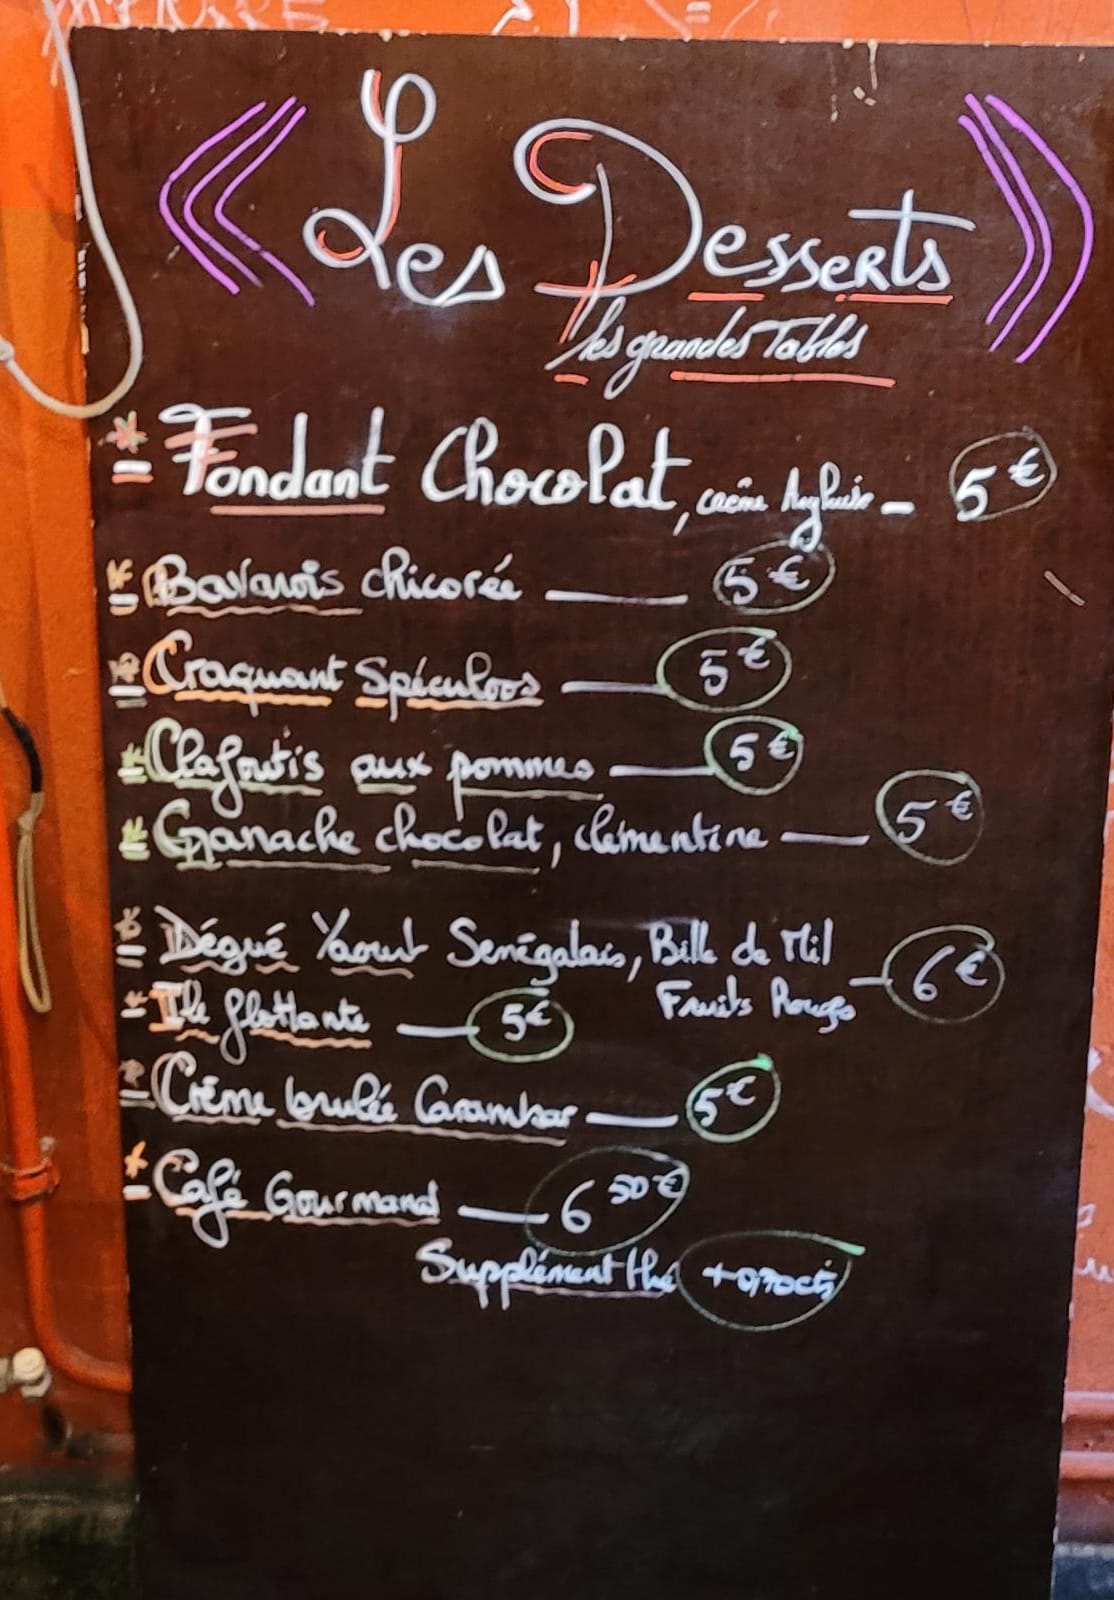 Les Desserts
les grandes Tables
* Fondant Chocolat, crème Anglaise - 5€
* Bavarois chicorée — 5€
* Craquant Spéculoos — 5€
* Clafoutis aux pommes — 5€
* Ganache chocolat, clémentine — 5€
* Dégué Yaourt Senégalais, Bille de Mil
Fruits Rouges — 6€
* Ile flottante — 5€
* Crème brulée Carambar — 5€
* Café Gourmand — 6 50€
Supplément thé